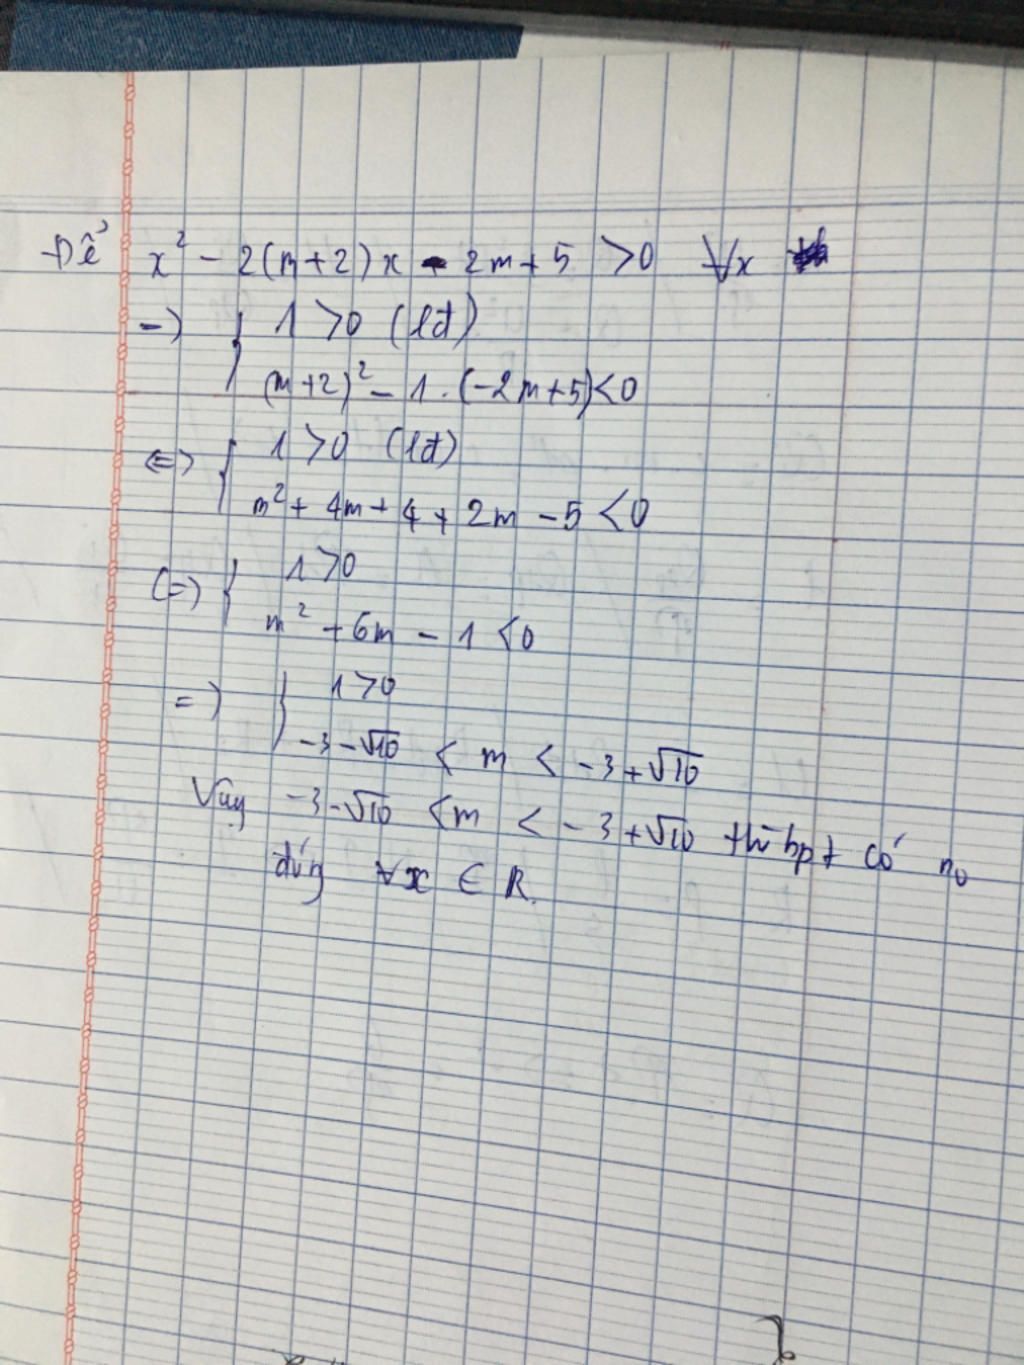 Để x² - 2(m+2)x - 2m+5 >0 ∀x
=> { 1 >0 (lđ)
(m+2)² - 1.(-2m+5)<0
<=> { 1 >0 (lđ)
m² + 4m + 4 + 2m - 5 <0
(=> { 1 >0
m² + 6m - 1 <0
=> { 1 >0
-3-√10 < m < -3+√10
Vậy -3-√10 < m < -3+√10 thì bpt có n₀
đúng ∀x ∈ R.